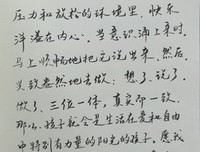 压力和放松的环境里，快乐
洋溢在内心。当意识涌上来时，
马上顺畅地把它说出来，然后
兴致盎然地去做；想了，说了，
做了，三位一体，真实即一致。
那么，孩子就会是生活在爱和自由
中特别有力量的阳光的孩子。愿我